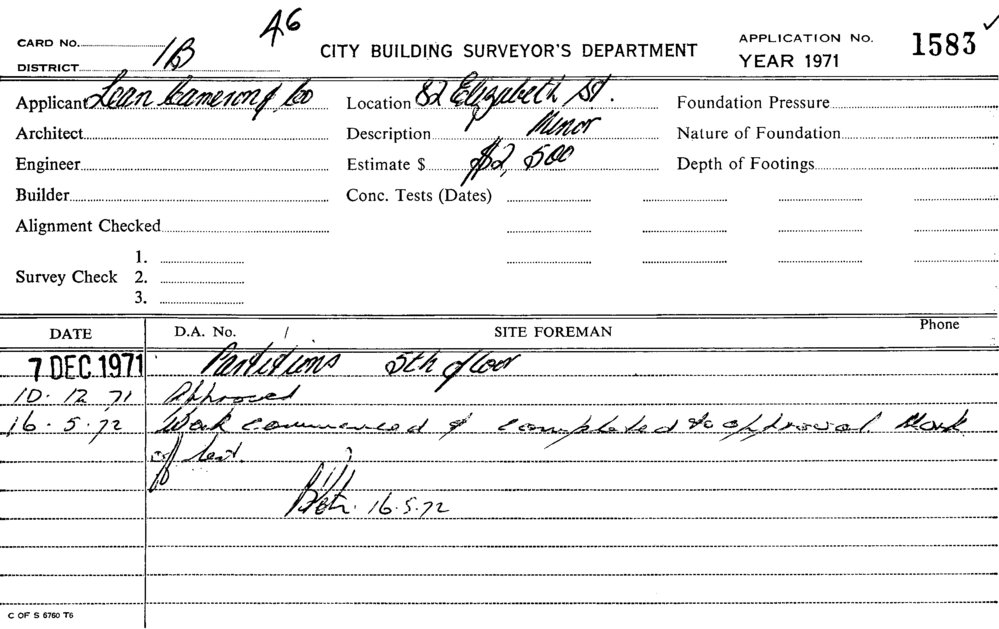 A6
CARD No. 1B
CITY BUILDING SURVEYOR'S DEPARTMENT
APPLICATION No. 1583
YEAR 1971
DISTRICT
Applicant Lean Cameron & Co
Location 82 Elizabeth St.
Foundation Pressure
Architect
Description Minor
Nature of Foundation
Engineer
Estimate $ $2,500
Depth of Footings
Builder
Conc. Tests (Dates)
Alignment Checked
Survey Check 1.
2.
3.
DATE
D.A. No. /
SITE FOREMAN
Phone
7 DEC 1971 Partitions 5th floor
10.12.71 Approved
16.5.72 Work commenced & completed to approval. Mark
off
16.5.72
C OF S 6760 T6